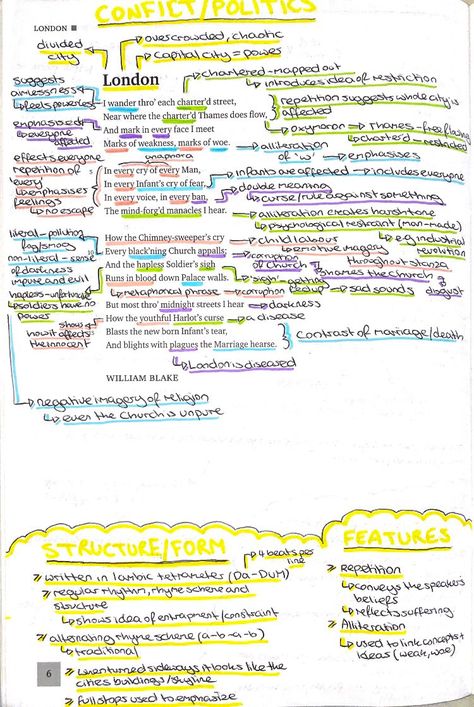 CONFLICT/POLITICS
LONDON
divided city
overcrowded, chaotic
capital city = power
London
chartered - mapped out
introduces idea of restriction
suggests aimlessness
feels powerless
I wander thro' each charter'd street,
Near where the charter'd Thames does flow,
And mark in every face I meet
Marks of weakness, marks of woe.
repetition suggests whole city is affected
oxymoron
Thames - free flowing
charter'd - restricted
emphasised
everyone affected
alliteration of 'w'
emphasises
anaphora
effects everyone
repetition of every
emphasises feelings
no escape
In every cry of every Man,
In every Infant's cry of fear,
In every voice, in every ban,
The mind-forg'd manacles I hear.
infants are affected
includes everyone
double meaning
curse/rule against something
alliteration creates harsh tone
psychological restraint (man-made)
literal - pollution, fog/smog
non-literal - sense of darkness
impure and evil
How the Chimney-sweeper's cry
Every black'ning Church appalls;
And the hapless Soldier's sigh
Runs in blood down Palace walls.
child labour
emotive imagery
e.g. industrial revolution
throughout stanza
corruption of Church
shames the Church
disgust
'sigh' - getting fed up
sad sounds
hapless - unfortunate
soldiers have no power
metaphorical phrase
corruption
But most thro' midnight streets I hear
How the youthful Harlot's curse
Blasts the new born Infant's tear,
And blights with plagues the Marriage hearse.
darkness
a disease
shows how it affects the innocent
contrast of marriage/death
London is diseased
WILLIAM BLAKE
negative imagery of religion
even the Church is unpure
STRUCTURE/FORM
4 beats per line
written in Iambic tetrameter (Da-DUM)
regular rhythm, rhyme scheme and structure
shows idea of entrapment/constraint
alternating rhyme scheme (a-b-a-b)
traditional
when turned sideways it looks like the cities buildings/skyline
full stops used to emphasize
FEATURES
Repetition
conveys the speakers beliefs
reflects suffering
Alliteration
used to link concepts + ideas (weak, woe)
6